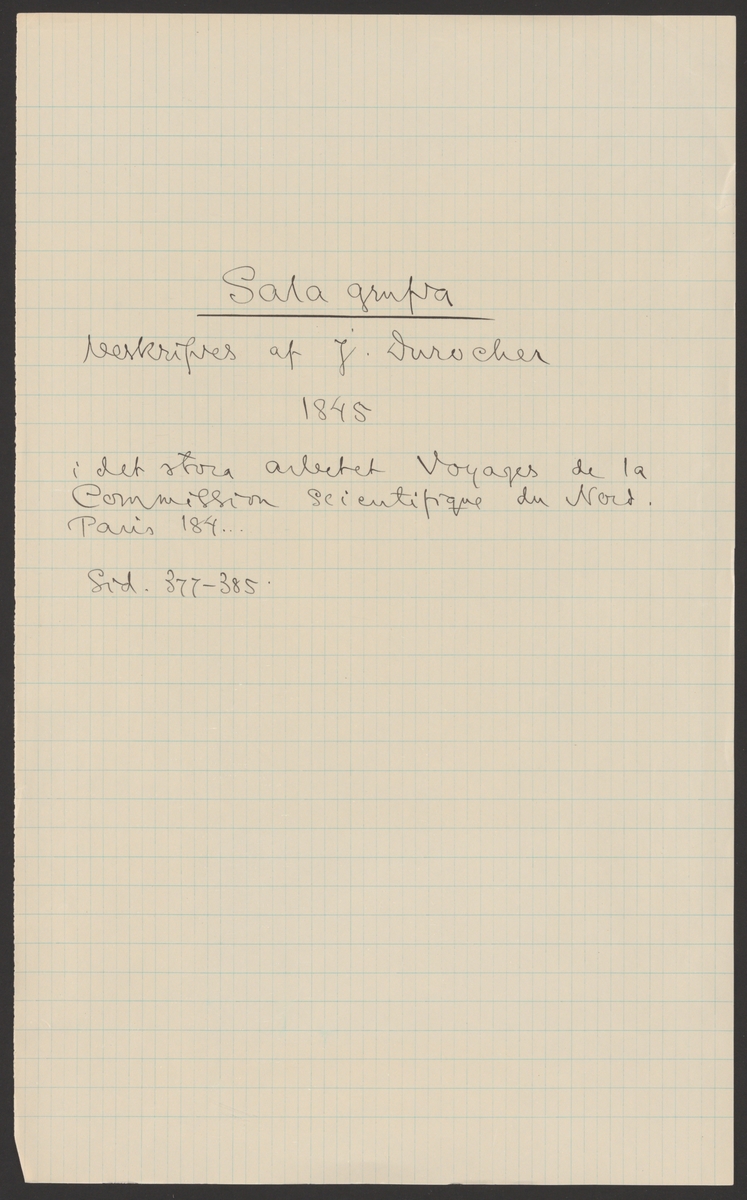 Sala grufva
beskrifves af J. Durocher
1845
i det stora arbetet Voyages de la
Commission Scientifique du Nord.
Paris 184...
Sid. 377-385.